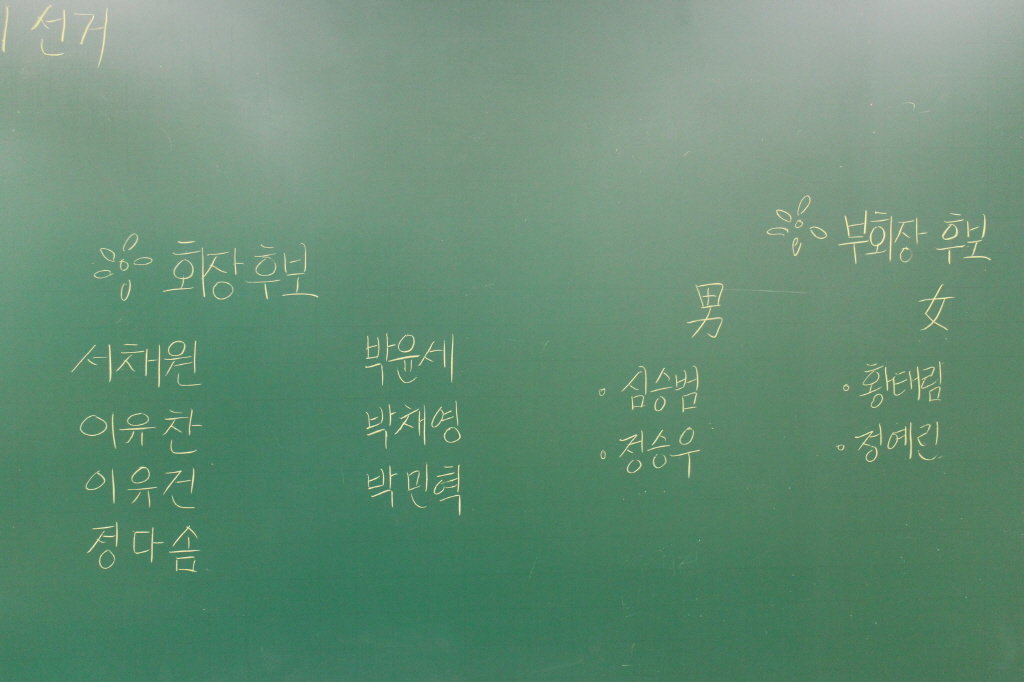 선거
회장 후보
서채원 박윤세
이유찬 박채영
이유건 박민혁
정다솜
부회장 후보
男 女
· 심승범 · 황태림
· 정승우 · 정예린